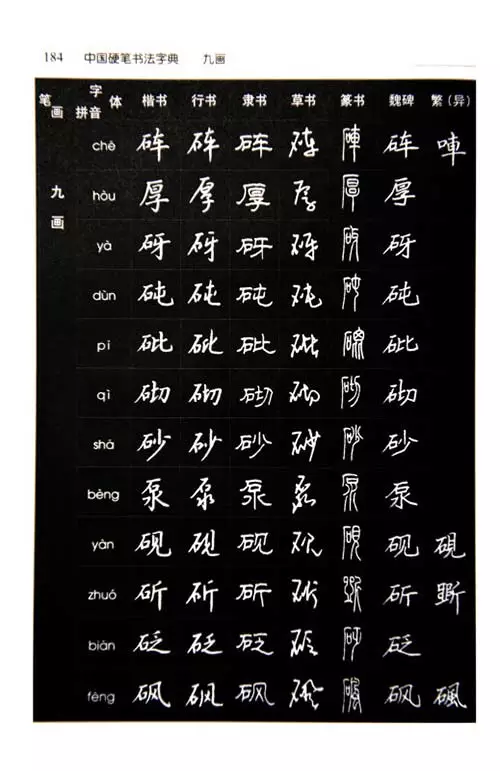 184 中国硬笔书法字典 九画
笔画 字体 拼音 楷书 行书 隶书 草书 篆书 魏碑 繁(异)
九画
chē 砗 砗 砗 砗 砗 砗 硨
hòu 厚 厚 厚 厚 厚 厚
yà 砑 砑 砑 砑 砑 砑
dùn 砘 砘 砘 砘 砘 砘
pī 砒 砒 砒 砒 砒 砒
qì 砌 砌 砌 砌 砌 砌
shā 砂 砂 砂 砂 砂 砂
bèng 泵 泵 泵 泵 泵 泵
yàn 砚 砚 砚 砚 砚 砚 硯
zhuó 斫 斫 斫 斫 斫
biān 砭 砭 砭 砭 砭 砭
fēng 砜 砜 砜 砜 砜 砜 碸